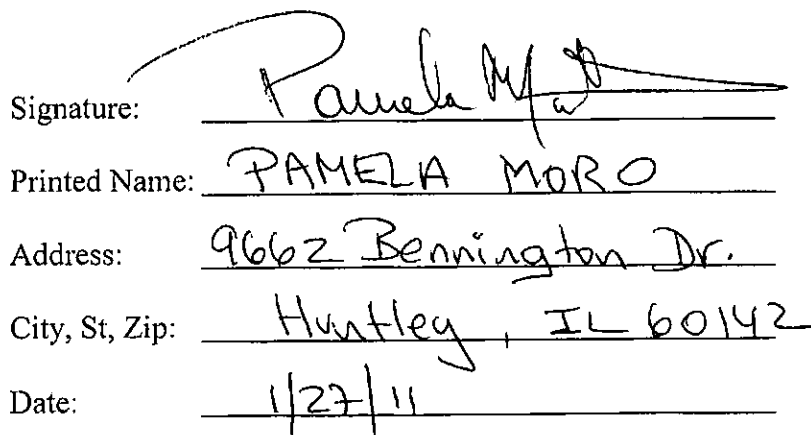 Signature: Pamela
Printed Name: PAMELA MORO
Address: 9662 Bennington Dr.
City, St, Zip: Huntley, IL 60142
Date: 1/27/11